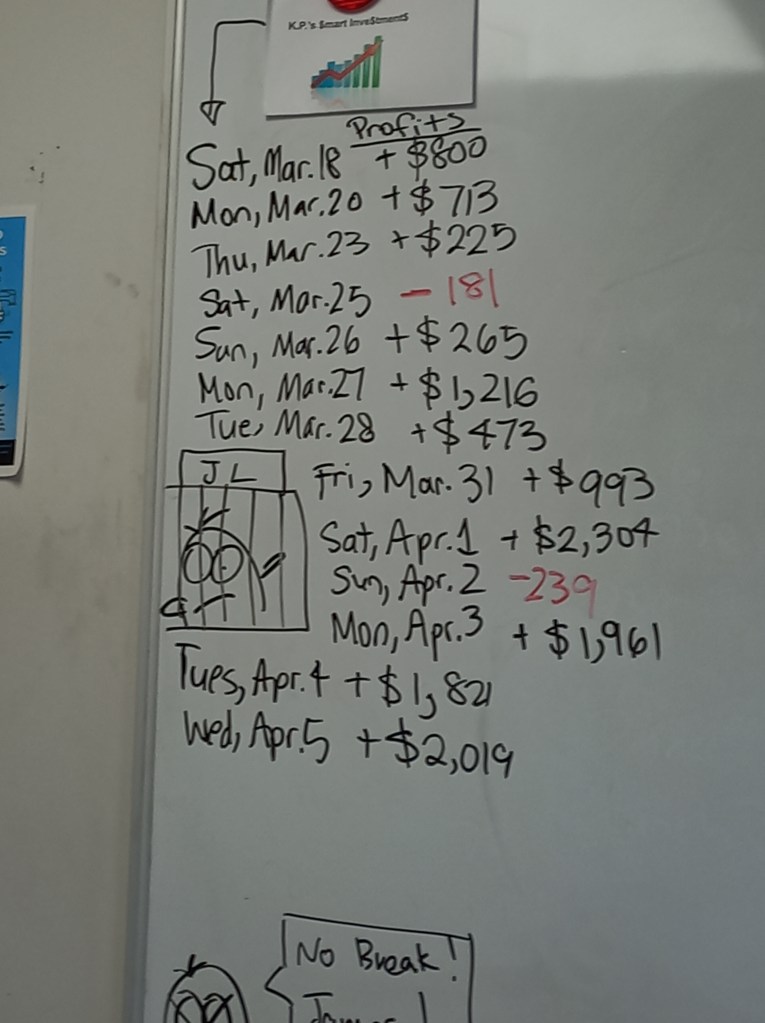 K.P.'s $mart Inve$tment$
Profits
Sat, Mar.18 + $800
Mon, Mar.20 + $713
Thu, Mar.23 + $225
Sat, Mar.25 - 181
Sun, Mar.26 + $265
Mon, Mar.27 + $1,216
Tue, Mar.28 + $473
JL
Fri, Mar.31 + $993
Sat, Apr.1 + $2,304
Sun, Apr.2 -239
Mon, Apr.3 + $1,961
Tues, Apr.4 + $1,821
Wed, Apr.5 + $2,019
No Break!